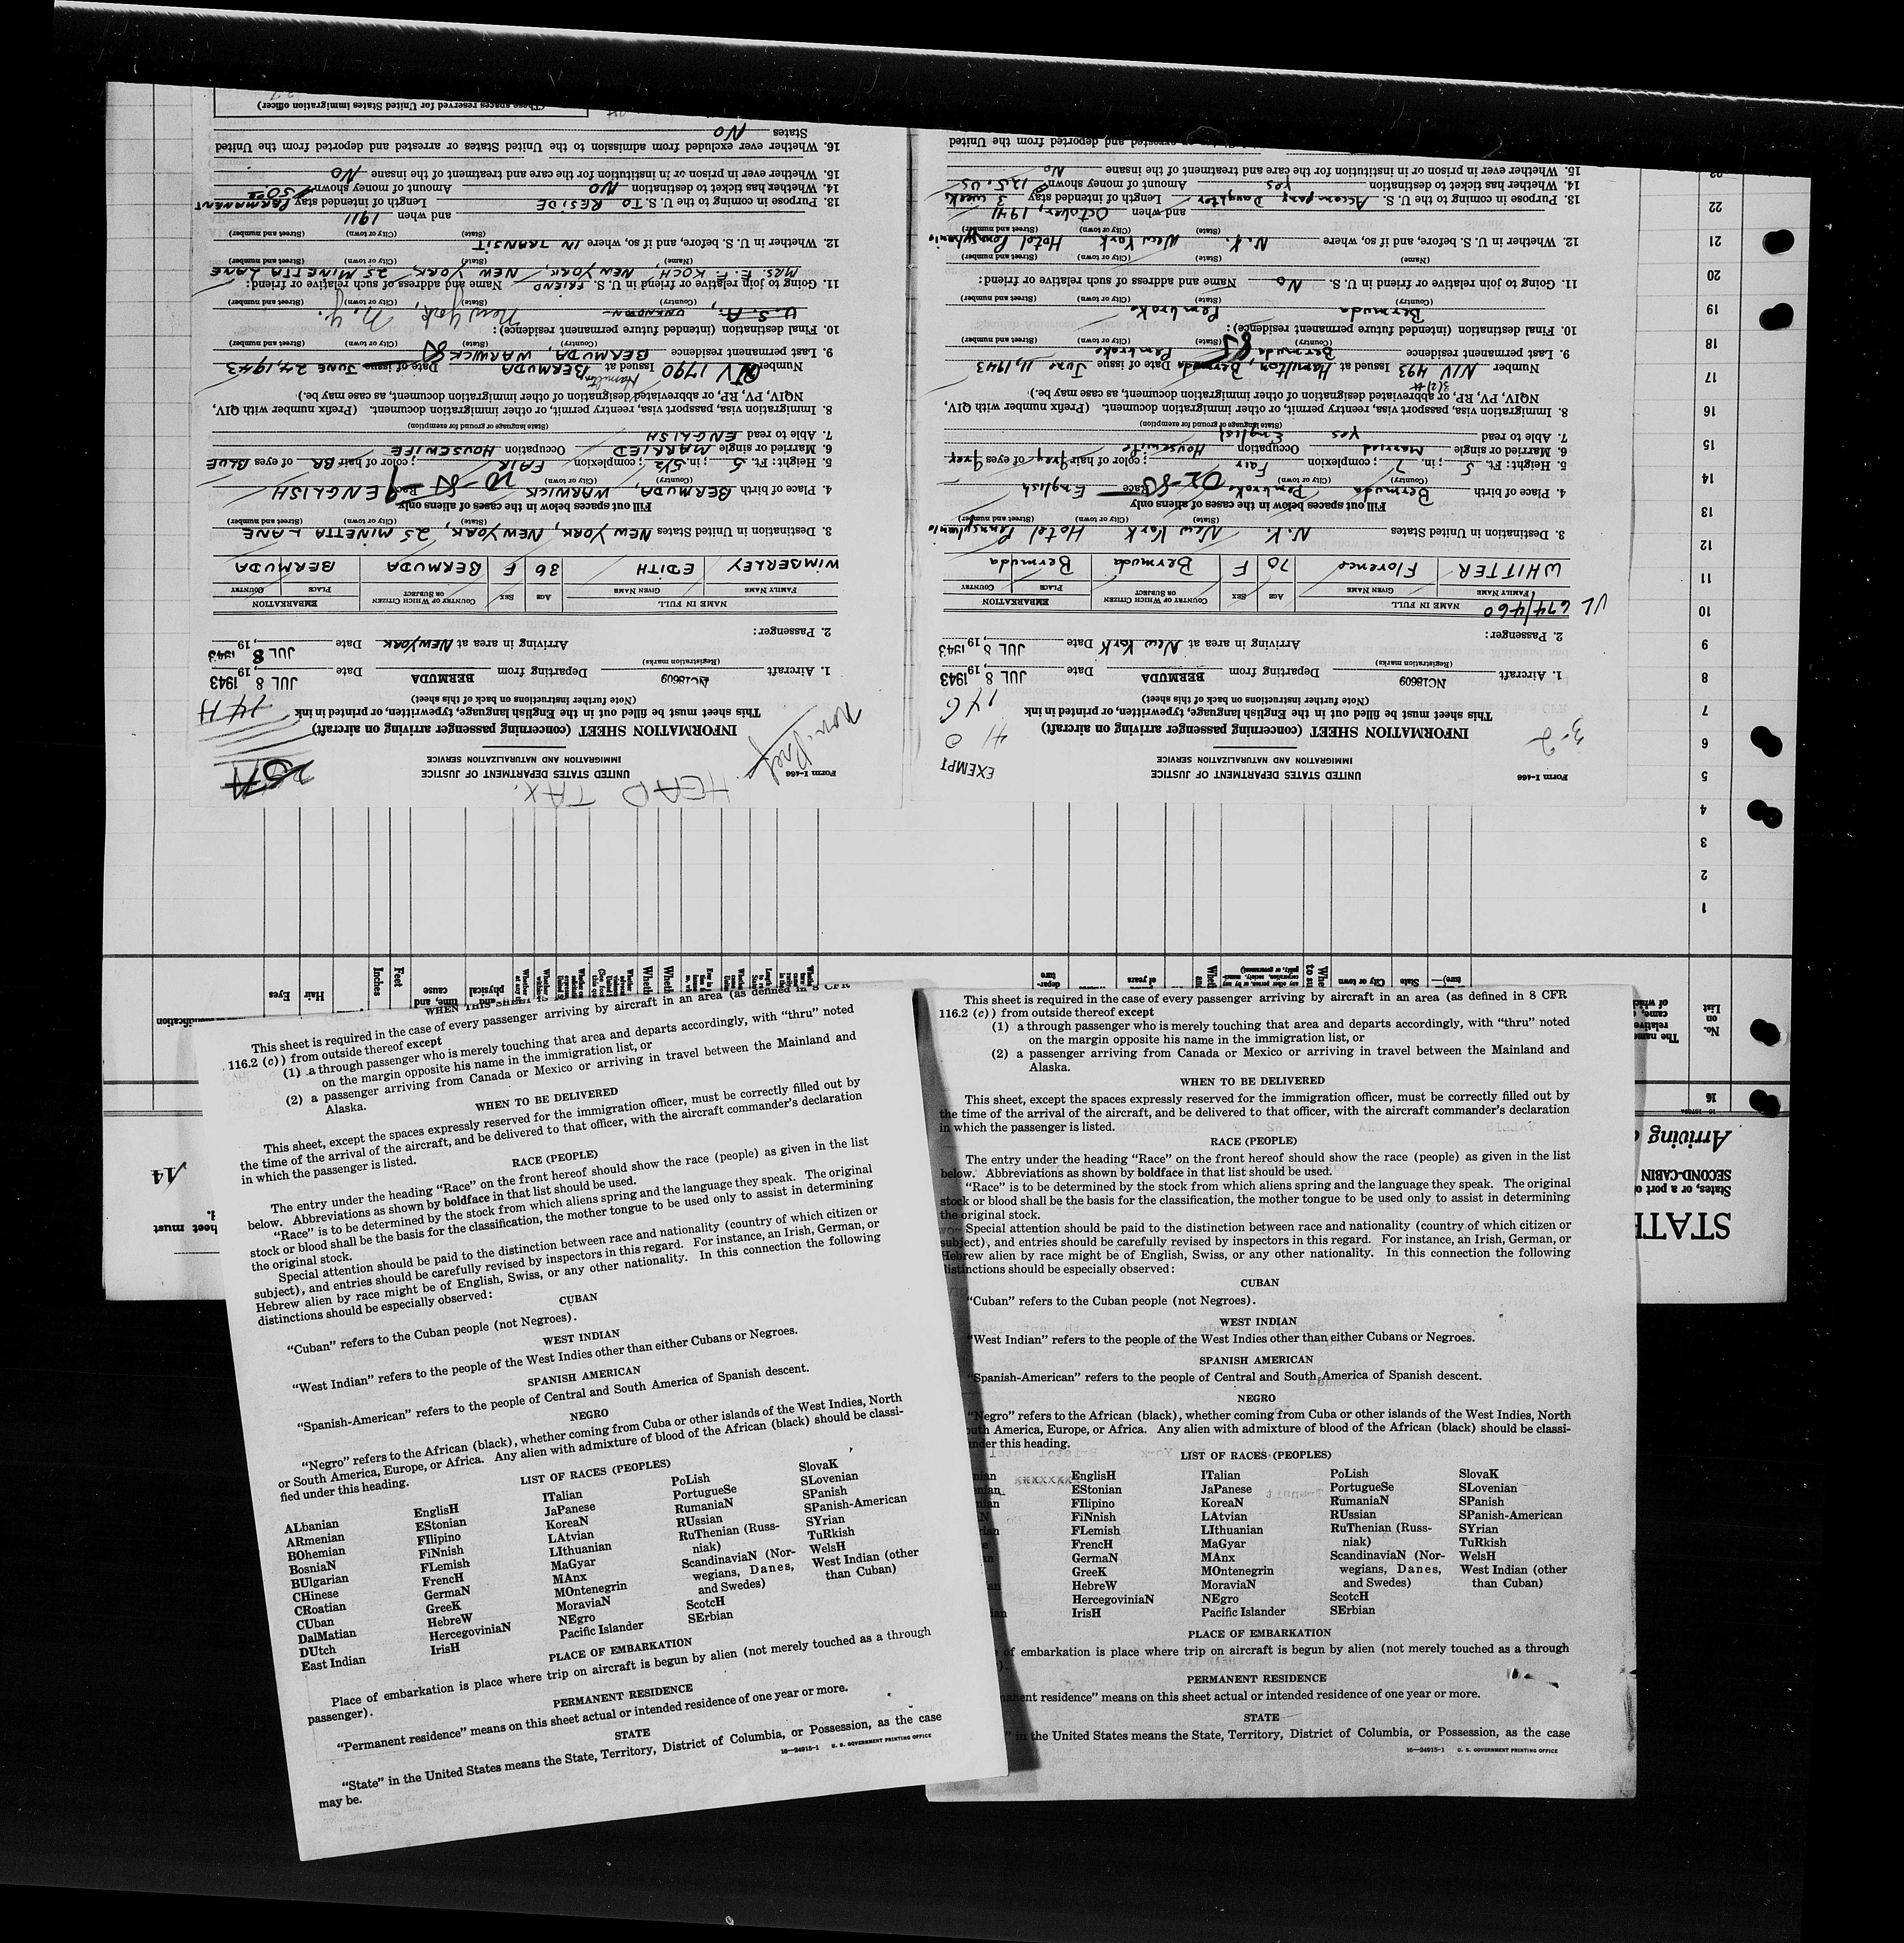 Form I-466
UNITED STATES DEPARTMENT OF JUSTICE
IMMIGRATION AND NATURALIZATION SERVICE
EXEMPT
INFORMATION SHEET (concerning passenger arriving on aircraft)
This sheet must be filled out in the English language, typewritten, or printed in ink
(Note further instructions on back of this sheet)
1. Aircraft NC18609 Departing from BERMUDA Date JUL 8 1943, 19
(Registration marks)
Arriving in area at New York Date JUL 8 1943, 19
2. Passenger:
NAME IN FULL AGE SEX COUNTRY OF WHICH CITIZEN OR SUBJECT EMBARKATION
FAMILY NAME GIVEN NAME PLACE COUNTRY
VL 674/460
WHITTER Florence 70 F Bermuda Bermuda
3. Destination in United States N.Y. New York Hotel Pennsylvania
(State) (City or town) (Street and number)
Fill out spaces below in the cases of aliens only
4. Place of birth Bermuda Pembroke Race English
(Country) (City or town)
5. Height: Ft. 5; in. 7; complexion Fair; color of hair Grey of eyes Grey
6. Married or single Married Occupation Housewife
7. Able to read Yes English
(State language or ground for exemption)
8. Immigration visa, passport visa, reentry permit, or other immigration document. (Prefix number with QIV,
NQIV, PV, RP, or abbreviated designation of other immigration document, as case may be.)
3(2)
Number NIV 493 Issued at Hamilton, Bermuda Date of issue June 11, 1943
9. Last permanent residence Bermuda Pembroke
(Country) (State) (City or town) (Street and number)
10. Final destination (intended future permanent residence):
Bermuda Pembroke
(Country) (State) (City or town) (Street and number)
11. Going to join relative or friend in U. S. No Name and address of such relative or friend:
(Name) (State) (City or town) (Street and number)
12. Whether in U. S. before, and if so, where N.Y. New York Hotel Pennsylvania
(State) (City or town) (Street and number)
and when October, 1941
13. Purpose in coming to the U. S. Accompany Daughter Length of intended stay 3 weeks
14. Whether has ticket to destination Yes Amount of money shown $125. US
15. Whether ever in prison or in institution for the care and treatment of the insane No
or arrested and deported from the United
Form I-466
HEAD TAX.
UNITED STATES DEPARTMENT OF JUSTICE
IMMIGRATION AND NATURALIZATION SERVICE
INFORMATION SHEET (concerning passenger arriving on aircraft)
This sheet must be filled out in the English language, typewritten, or printed in ink
(Note further instructions on back of this sheet)
14 H
1. Aircraft NC18609 Departing from BERMUDA Date JUL 8 1943, 19
(Registration marks)
Arriving in area at NEW YORK Date JUL 8 1943, 19
2. Passenger:
NAME IN FULL AGE SEX COUNTRY OF WHICH CITIZEN OR SUBJECT EMBARKATION
FAMILY NAME GIVEN NAME PLACE COUNTRY
WIMBERLEY EDITH 36 F BERMUDA BERMUDA
3. Destination in United States NEW YORK, NEW YORK, 25 MINETTA LANE
(State) (City or town) (Street and number)
Fill out spaces below in the cases of aliens only
4. Place of birth BERMUDA, WARWICK Race ENGLISH
(Country) (City or town)
5. Height: Ft. 5; in. 5½; complexion FAIR; color of hair BR of eyes BLUE
6. Married or single MARRIED Occupation HOUSEWIFE
7. Able to read ENGLISH
(State language or ground for exemption)
8. Immigration visa, passport visa, reentry permit, or other immigration document. (Prefix number with QIV,
NQIV, PV, RP, or abbreviated designation of other immigration document, as case may be.)
Hamilton
Number QIV 1790 Issued at BERMUDA Date of issue JUNE 24, 1943
9. Last permanent residence BERMUDA, WARWICK
(Country) (State) (City or town) (Street and number)
10. Final destination (intended future permanent residence):
U.S.A., UNKNOWN New York, N.Y.
(Country) (State) (City or town) (Street and number)
11. Going to join relative or friend in U. S. FRIEND Name and address of such relative or friend:
MRS. E. F. KOCH, NEW YORK, NEW YORK, 25 MINETTA LANE
(Name) (State) (City or town) (Street and number)
12. Whether in U. S. before, and if so, where IN TRANSIT
(State) (City or town) (Street and number)
and when 1911
13. Purpose in coming to the U. S. TO RESIDE Length of intended stay PERMANENT
14. Whether has ticket to destination NO Amount of money shown $50.00
15. Whether ever in prison or in institution for the care and treatment of the insane NO
16. Whether ever excluded from admission to the United States or arrested and deported from the United
States NO
(These spaces reserved for United States immigration officer)
This sheet is required in the case of every passenger arriving by aircraft in an area (as defined in 8 CFR
116.2 (c)) from outside thereof except
(1) a through passenger who is merely touching that area and departs accordingly, with “thru” noted
on the margin opposite his name in the immigration list, or
(2) a passenger arriving from Canada or Mexico or arriving in travel between the Mainland and
Alaska.
WHEN TO BE DELIVERED
This sheet, except the spaces expressly reserved for the immigration officer, must be correctly filled out by
the time of the arrival of the aircraft, and be delivered to that officer, with the aircraft commander's declaration
in which the passenger is listed.
RACE (PEOPLE)
The entry under the heading “Race” on the front hereof should show the race (people) as given in the list
below. Abbreviations as shown by boldface in that list should be used.
“Race” is to be determined by the stock from which aliens spring and the language they speak. The original
stock or blood shall be the basis for the classification, the mother tongue to be used only to assist in determining
the original stock.
Special attention should be paid to the distinction between race and nationality (country of which citizen or
subject), and entries should be carefully revised by inspectors in this regard. For instance, an Irish, German, or
Hebrew alien by race might be of English, Swiss, or any other nationality. In this connection the following
distinctions should be especially observed:
CUBAN
“Cuban” refers to the Cuban people (not Negroes).
WEST INDIAN
“West Indian” refers to the people of the West Indies other than either Cubans or Negroes.
SPANISH AMERICAN
“Spanish-American” refers to the people of Central and South America of Spanish descent.
NEGRO
“Negro” refers to the African (black), whether coming from Cuba or other islands of the West Indies, North
or South America, Europe, or Africa. Any alien with admixture of blood of the African (black) should be classi-
fied under this heading.
LIST OF RACES (PEOPLES)
ALbanian EnglisH ITalian PoLish SlovaK
ARmenian EStonian JaPanese PortugueSe SLovenian
BOhemian FIlipino KoreaN RumaniaN SPanish
BosniaN FiNnish LAtvian RUssian SPanish-American
BUlgarian FLemish LIthuanian RuThenian (Russ- SYrian
CHinese FrencH MaGyar niak) TuRkish
CRoatian GermaN MAnx ScandinaviaN (Nor- WelsH
CUban GreeK MOntenegrin wegians, Danes, West Indian (other
DalMatian HebreW MoraviaN and Swedes) than Cuban)
DUtch HercegoviniaN NEgro ScotcH
East Indian IrisH Pacific Islander SErbian
PLACE OF EMBARKATION
Place of embarkation is place where trip on aircraft is begun by alien (not merely touched as a through
passenger).
PERMANENT RESIDENCE
“Permanent residence” means on this sheet actual or intended residence of one year or more.
STATE
“State” in the United States means the State, Territory, District of Columbia, or Possession, as the case
may be.
16—24915-1 U. S. GOVERNMENT PRINTING OFFICE
This sheet is required in the case of every passenger arriving by aircraft in an area (as defined in 8 CFR
116.2 (c)) from outside thereof except
(1) a through passenger who is merely touching that area and departs accordingly, with “thru” noted
on the margin opposite his name in the immigration list, or
(2) a passenger arriving from Canada or Mexico or arriving in travel between the Mainland and
Alaska.
WHEN TO BE DELIVERED
This sheet, except the spaces expressly reserved for the immigration officer, must be correctly filled out by
the time of the arrival of the aircraft, and be delivered to that officer, with the aircraft commander's declaration
in which the passenger is listed.
RACE (PEOPLE)
The entry under the heading “Race” on the front hereof should show the race (people) as given in the list
below. Abbreviations as shown by boldface in that list should be used.
“Race” is to be determined by the stock from which aliens spring and the language they speak. The original
stock or blood shall be the basis for the classification, the mother tongue to be used only to assist in determining
the original stock.
Special attention should be paid to the distinction between race and nationality (country of which citizen or
subject), and entries should be carefully revised by inspectors in this regard. For instance, an Irish, German, or
Hebrew alien by race might be of English, Swiss, or any other nationality. In this connection the following
distinctions should be especially observed:
CUBAN
“Cuban” refers to the Cuban people (not Negroes).
WEST INDIAN
“West Indian” refers to the people of the West Indies other than either Cubans or Negroes.
SPANISH AMERICAN
“Spanish-American” refers to the people of Central and South America of Spanish descent.
NEGRO
“Negro” refers to the African (black), whether coming from Cuba or other islands of the West Indies, North
America, Europe, or Africa. Any alien with admixture of blood of the African (black) should be classi-
under this heading.
LIST OF RACES (PEOPLES)
EnglisH ITalian PoLish SlovaK
EStonian JaPanese PortugueSe SLovenian
FIlipino KoreaN RumaniaN SPanish
FiNnish LAtvian RUssian SPanish-American
FLemish LIthuanian RuThenian (Russ- SYrian
FrencH MaGyar niak) TuRkish
GermaN MAnx ScandinaviaN (Nor- WelsH
GreeK MOntenegrin wegians, Danes, West Indian (other
HebreW MoraviaN and Swedes) than Cuban)
HercegoviniaN NEgro ScotcH
IrisH Pacific Islander SErbian
PLACE OF EMBARKATION
of embarkation is place where trip on aircraft is begun by alien (not merely touched as a through
PERMANENT RESIDENCE
residence” means on this sheet actual or intended residence of one year or more.
STATE
in the United States means the State, Territory, District of Columbia, or Possession, as the case
16—24915-1 U. S. GOVERNMENT PRINTING OFFICE
STATE
States, or a port of
SECOND-CABIN
Arriving
16
No. on List
1
2
3
4
5
6
7
8
9
10
11
12
13
14
15
16
17
18
19
20
21
22
City or town
State
Feet
Inches
Hair
Eyes
sheet must